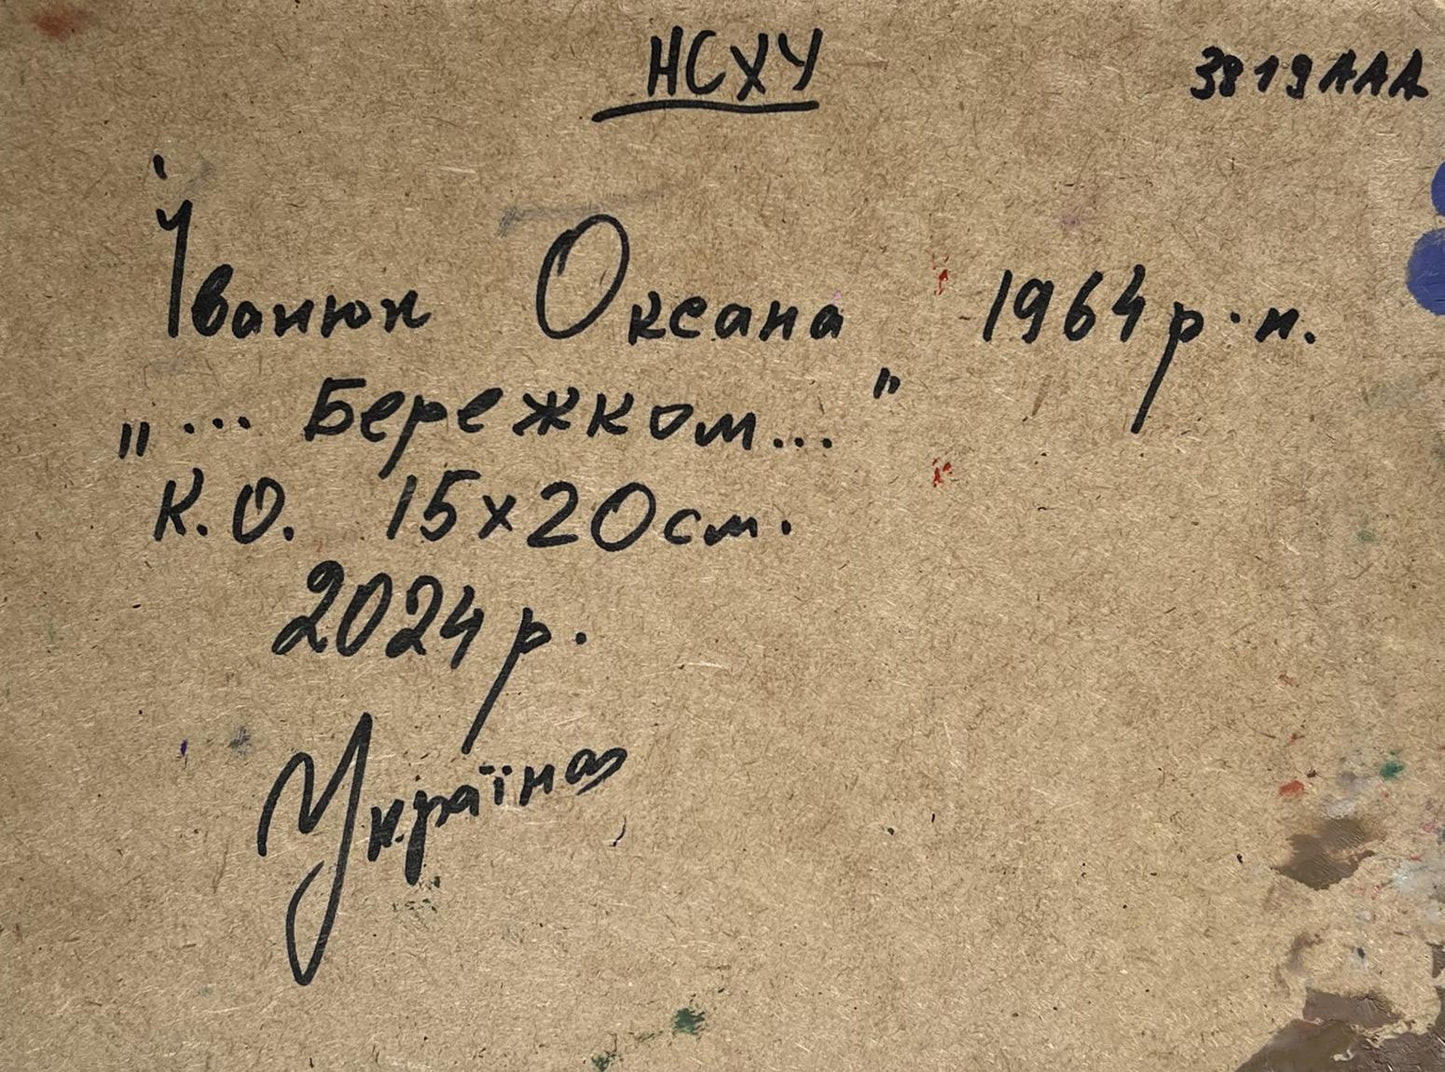 НСХУ
3819ААА
Іванюк Оксана 1964 р.н.
„... Бережком..."
К.О. 15х20см.
2024р.
Україна